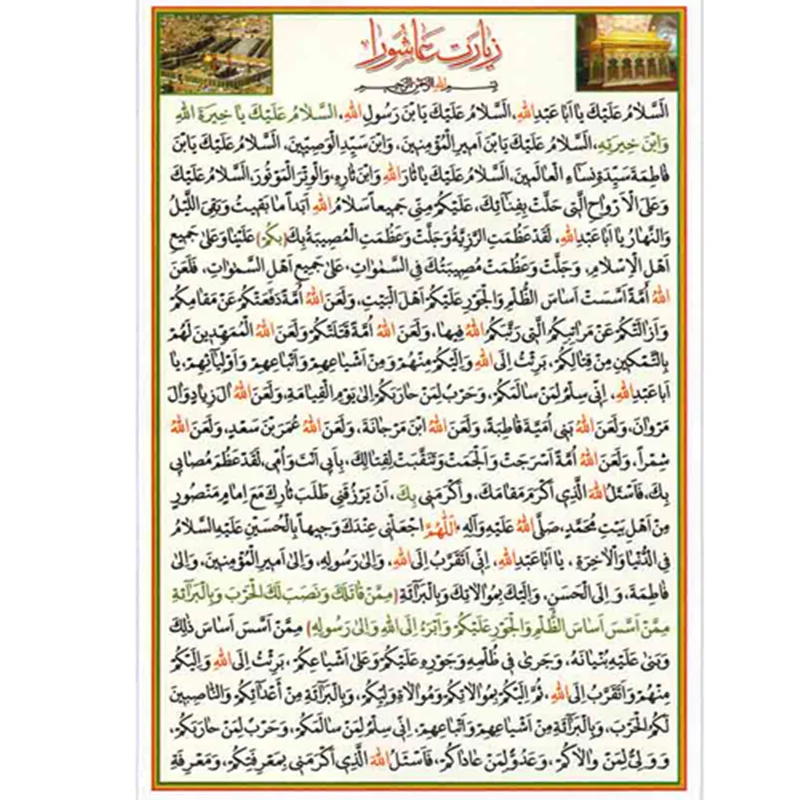 زیارت عاشورا
بِسْمِ اللهِ الرَّحْمٰنِ الرَّحیمِ
اَلسَّلامُ عَلَیْكَ یا اَبا عَبْدِ اللهِ، اَلسَّلامُ عَلَیْكَ یَا بْنَ رَسُولِ اللهِ، اَلسَّلامُ عَلَیْكَ یا خِیَرَةَ اللهِ
وَابْنَ خِیَرَتِهِ، اَلسَّلامُ عَلَیْكَ یَا بْنَ اَمیرِ الْمُؤْمِنینَ، وَابْنَ سَیِّدِ الْوَصِیّینَ، اَلسَّلامُ عَلَیْكَ یَا بْنَ
فاطِمَةَ سَیِّدَةِ نِساءِ الْعالَمینَ، اَلسَّلامُ عَلَیْكَ یا ثارَ اللهِ وَابْنَ ثارِهِ، وَالْوِتْرَ الْمَوْتُورَ، اَلسَّلامُ عَلَیْكَ
وَعَلَی الْاَرْواحِ الَّتی حَلَّتْ بِفِنائِكَ، عَلَیْكُمْ مِنّی جَمیعاً سَلامُ اللهِ اَبَداً ما بَقیتُ وَبَقِیَ اللَّیْلُ
وَالنَّهارُ یا اَبا عَبْدِ اللهِ، لَقَدْ عَظُمَتِ الرَّزِیَّةُ وَجَلَّتْ وَعَظُمَتِ الْمُصیبَةُ بِكَ (بِكُمْ) عَلَیْنا وَعَلی جَمیعِ
اَهْلِ الْاِسْلامِ، وَجَلَّتْ وَعَظُمَتْ مُصیبَتُكَ فِی السَّمٰواتِ، عَلی جَمیعِ اَهْلِ السَّمٰواتِ، فَلَعَنَ
اللهُ اُمَّةً اَسَّسَتْ اَساسَ الظُّلْمِ وَالْجَوْرِ عَلَیْكُمْ اَهْلَ الْبَیْتِ، وَلَعَنَ اللهُ اُمَّةً دَفَعَتْكُمْ عَنْ مَقامِكُمْ
وَاَزالَتْكُمْ عَنْ مَراتِبِكُمُ الَّتی رَتَّبَكُمُ اللهُ فیها، وَلَعَنَ اللهُ اُمَّةً قَتَلَتْكُمْ وَلَعَنَ اللهُ الْمُمَهِّدینَ لَهُمْ
بِالتَّمْكینِ مِنْ قِتالِكُمْ، بَرِئْتُ اِلَی اللهِ وَاِلَیْكُمْ مِنْهُمْ وَمِنْ اَشْیاعِهِمْ وَاَتْباعِهِمْ وَاَوْلِیائِهِمْ، یا
اَبا عَبْدِ اللهِ، اِنّی سِلْمٌ لِمَنْ سالَمَكُمْ، وَحَرْبٌ لِمَنْ حارَبَكُمْ اِلی یَوْمِ الْقِیامَةِ، وَلَعَنَ اللهُ الَ زِیادٍ وَالَ
مَرْوانَ، وَلَعَنَ اللهُ بَنی اُمَیَّةَ قاطِبَةً، وَلَعَنَ اللهُ ابْنَ مَرْجانَةَ، وَلَعَنَ اللهُ عُمَرَ بْنَ سَعْدٍ، وَلَعَنَ اللهُ
شِمْراً، وَلَعَنَ اللهُ اُمَّةً اَسْرَجَتْ وَاَلْجَمَتْ وَتَنَقَّبَتْ لِقِتالِكَ، بِاَبی اَنْتَ وَاُمّی، لَقَدْ عَظُمَ مُصابی
بِكَ، فَاَسْئَلُ اللهَ الَّذی اَكْرَمَ مَقامَكَ، وَاَكْرَمَنی بِكَ، اَنْ یَرْزُقَنی طَلَبَ ثارِكَ مَعَ اِمامٍ مَنْصُورٍ
مِنْ اَهْلِ بَیْتِ مُحَمَّدٍ، صَلَّی اللهُ عَلَیْهِ وَآلِهِ، اَللّهُمَّ اجْعَلْنی عِنْدَكَ وَجیهاً بِالْحُسَیْنِ عَلَیْهِ السَّلامُ
فِی الدُّنْیا وَالْاخِرَةِ، یا اَبا عَبْدِ اللهِ، اِنّی اَتَقَرَّبُ اِلَی اللهِ، وَاِلی رَسُولِهِ، وَاِلی اَمیرِ الْمُؤْمِنینَ، وَاِلی
فاطِمَةَ، وَاِلَی الْحَسَنِ، وَاِلَیْكَ بِمُوالاتِكَ وَبِالْبَرآئَةِ (مِمَّنْ قاتَلَكَ وَنَصَبَ لَكَ الْحَرْبَ وَبِالْبَرآئَةِ
مِمَّنْ اَسَّسَ اَساسَ الظُّلْمِ وَالْجَوْرِ عَلَیْكُمْ وَاَبْرَءُ اِلَی اللهِ وَاِلی رَسُولِهِ) مِمَّنْ اَسَّسَ اَساسَ ذلِكَ
وَبَنی عَلَیْهِ بُنْیانَهُ، وَجَری فی ظُلْمِهِ وَجَوْرِهِ عَلَیْكُمْ وَعَلی اَشْیاعِكُمْ، بَرِئْتُ اِلَی اللهِ وَاِلَیْكُمْ
مِنْهُمْ وَاَتَقَرَّبُ اِلَی اللهِ، ثُمَّ اِلَیْكُمْ بِمُوالاتِكُمْ وَمُوالاةِ وَلِیِّكُمْ، وَبِالْبَرآئَةِ مِنْ اَعْدائِكُمْ وَالنّاصِبینَ
لَكُمُ الْحَرْبَ، وَبِالْبَرآئَةِ مِنْ اَشْیاعِهِمْ وَاَتْباعِهِمْ، اِنّی سِلْمٌ لِمَنْ سالَمَكُمْ، وَحَرْبٌ لِمَنْ حارَبَكُمْ،
وَوَلِیٌّ لِمَنْ والاكُمْ، وَعَدُوٌّ لِمَنْ عاداكُمْ، فَاَسْئَلُ اللهَ الَّذی اَكْرَمَنی بِمَعْرِفَتِكُمْ، وَمَعْرِفَةِ